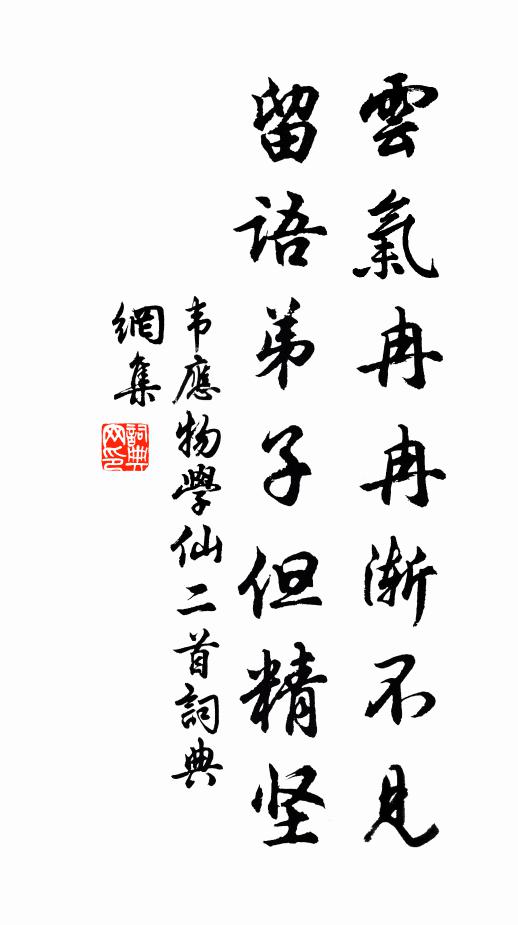 雲氣冉冉漸不見
留語弟子但精坚
韦應物學仙二首詞典
網集
詞典
网印